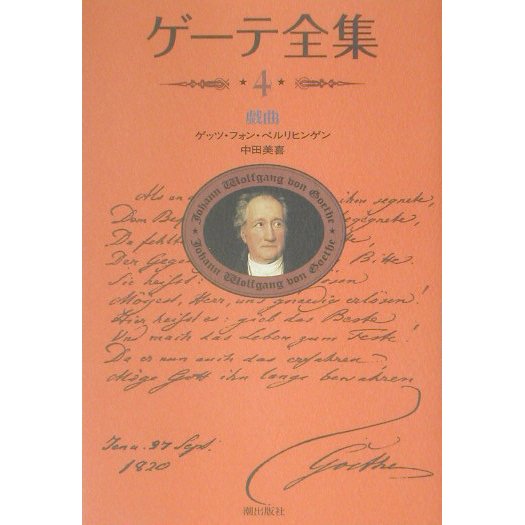 ゲーテ全集
4
戯曲
ゲッツ・フォン・ベルリヒンゲン
中田美喜
Johann Wolfgang von Goethe
Johann Wolfgang von Goethe
Als an ihm segnete,
Dom Be gegnete,
Da fehlte
Der Gegen Bitte
Sie heißt: lösen
Mögest, Herr, uns gnaedig erlösen!
Hier heißt es: gieb das Beste
Und mach das Leben zum Feste.
Da er nun auch das erfahren
Möge Gott ihn lange bewahren
Jena. 27 Sept.
1820
Goethe
潮出版社